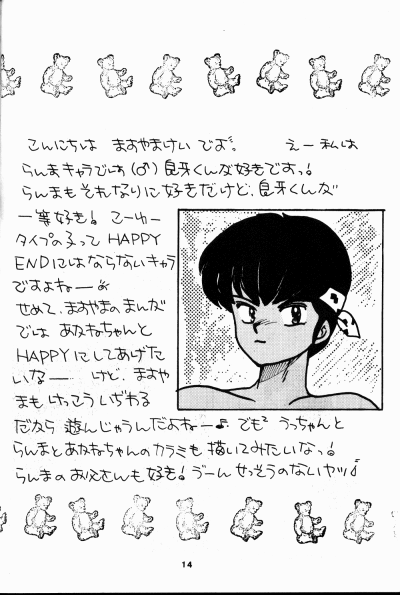 こんにちは ますやまけい でよ〜 えー私は
らんまキャラでは(♂)良牙くんが好きですっ!
らんまもそれなりに好きだけど、良牙くんが
一等好き! てーゆー
タイプの子って HAPPY
ENDにはならないキャラ
ですよねー
せめて、ますやまのまんが
では あかねちゃんと
HAPPYにしてあげた
いなー けど、ますや
まも けっこういぢわる
だから 遊んじゃうんだよねー♪ でも² うっちゃんと
らんまとあかねちゃんのカラミも 描いてみたいなっ!
らんまのお父さんも好き! うーん せっそうのないヤツ♪
14